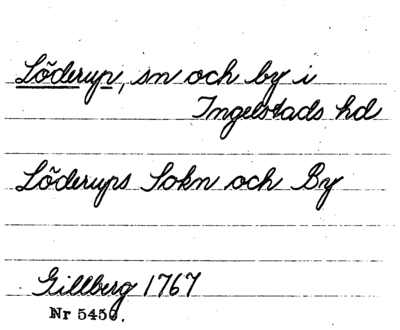 Löderup, sn och by i
Ingelstads hd
Löderups Sokn och By
Gillberg 1767
Nr 5450.